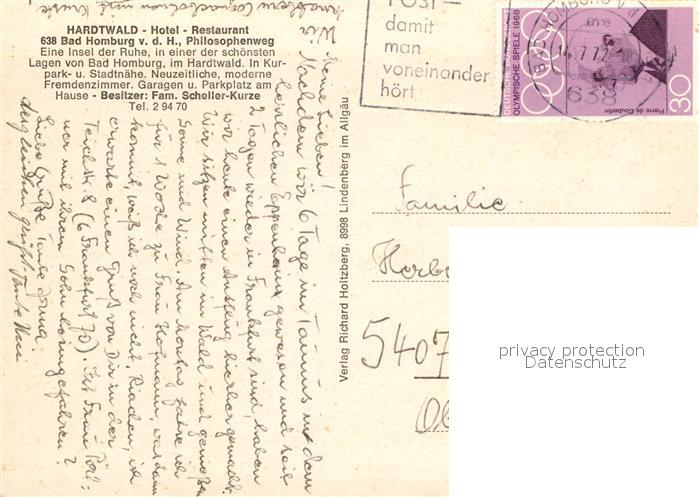 HARDTWALD - Hotel - Restaurant
638 Bad Homburg v. d. H., Philosophenweg
Eine Insel der Ruhe, in einer der schönsten
Lagen von Bad Homburg, im Hardtwald. In Kur-
park- u. Stadtnähe. Neuzeitliche, moderne
Fremdenzimmer. Garagen u. Parkplatz am
Hause - Besitzer: Fam. Scheller-Kurze
Tel. 2 94 70
Meine Lieben!
Nachdem wir 6 Tage im Taunus in dem
herrlichen Eppenhain gewesen und seit
2 Tagen wieder in Frankfurt sind, haben
wir heute einen Ausflug hierher gemacht.
Wir sitzen mitten im Wald und genießen
Sonne und Wind. Am Montag fahre ich
für 1 Woche zu Frau Hofmann, was dann
kommt, weiß ich noch nicht. ich
erwarte einen Gruß von Dir in der
Teichstr. 8 (6 Frankfurt 70). Ist Frau
mit ihrem Sohn losgefahren?
Liebe Grüße Tante
desgleichen grüßt Tante
Verlag Richard Holtzberg, 8998 Lindenberg im Allgäu
POST -
damit
man
voneinander
hört
DEUTSCHE BUNDESPOST
OLYMPISCHE SPIELE 1968
Pierre de Coubertin
30
BAD HOMBURG V
638
Familie
Herb
5407
privacy protection
Datenschutz